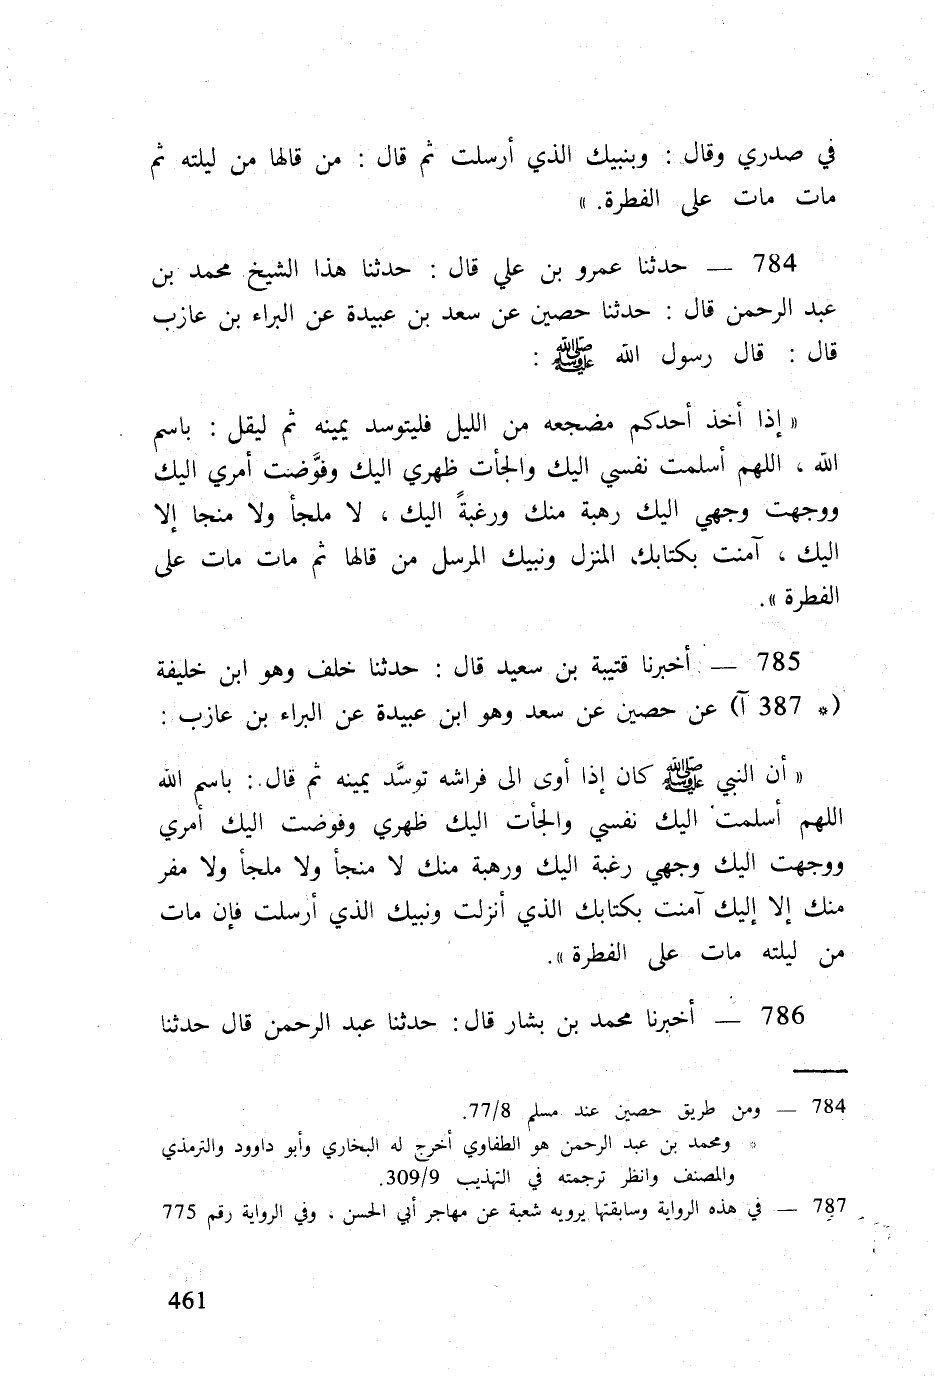 في صدري وقال : وبنبيك الذي أرسلت ثم قال : من قالها من ليلته ثم
مات مات على الفطرة. »
784 — حدثنا عمرو بن علي قال : حدثنا هذا الشيخ محمد بن
عبد الرحمن قال : حدثنا حصين عن سعد بن عبيدة عن البراء بن عازب
قال : قال رسول الله ﷺ :
« إذا أخذ أحدكم مضجعه من الليل فليتوسد يمينه ثم ليقل : باسم
الله ، اللهم أسلمت نفسي اليك والجأت ظهري اليك وفوَّضت أمري اليك
ووجهت وجهي اليك رهبة منك ورغبةً اليك ، لا ملجأ ولا منجا إلا
اليك ، آمنت بكتابك المنزل ونبيك المرسل من قالها ثم مات مات على
الفطرة ».
785 — أخبرنا قتيبة بن سعيد قال : حدثنا خلف وهو ابن خليفة
(* 387 آ) عن حصين عن سعد وهو ابن عبيدة عن البراء بن عازب :
« أن النبي ﷺ كان إذا أوى الى فراشه توسَّد يمينه ثم قال : باسم الله
اللهم أسلمت اليك نفسي والجأت اليك ظهري وفوضت اليك أمري
ووجهت اليك وجهي رغبة اليك ورهبة منك لا منجأ ولا ملجأ ولا مفر
منك إلا إليك آمنت بكتابك الذي أنزلت ونبيك الذي أرسلت فإن مات
من ليلته مات على الفطرة ».
786 — أخبرنا محمد بن بشار قال : حدثنا عبد الرحمن قال حدثنا
784 — ومن طريق حصين عند مسلم 77/8.
* ومحمد بن عبد الرحمن هو الطفاوي أخرج له البخاري وأبو داوود والترمذي
والمصنف وانظر ترجمته في التهذيب 309/9.
787 — في هذه الرواية وسابقتها يرويه شعبة عن مهاجر أبي الحسن ، وفي الرواية رقم 775
461